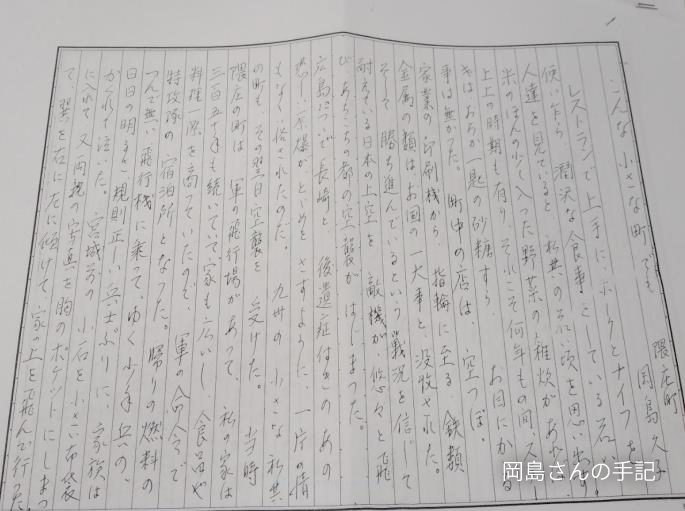 こんな小さな町でも
隈庄町 岡島久子
レストランで上手に、ホークとナイフを
使い乍ら、潤沢な食事をしている若い
人達を見ていると、私共の若い頃を思い出す。
米のほんの少く入った野菜の雑炊があれば
上上の時期も有り、それこそ何年もの間、スプー
きはおろか一匙の砂糖すら、お目にかかる
事は無かった。町中の店は、空っぽ。
家業の印刷機から、指輪に至る、鉄類
金属の類はお国の一大事と没収された。
そして勝ち進んでいるという戦況を信じて
耐えている日本の上空を、敵機が悠々と飛
び、あちこちの都の空襲が、はじまった。
広島についで長崎と、後遺症付きのあの
恐しい原爆が、とどめをさすように、一片の情
もなく落されたのだ。九州の小さな私共
の町も、その翌日空襲を受けた。当時
隈庄の町は、軍の飛行場があって、私の家は
三百五十年も続いていて家も広いし、食品や
料理一際を商っていたので、軍の命令で
特攻隊の宿泊所となった。帰りの燃料の
つんで無い飛行機に乗って、ゆく少年兵の、
日日の明るく規則正しい兵士ぶりに、家族は
かくれて泣いた。宮城前の小石を小さい布袋
に入れて又両親の写真を胸のポケットにしまっ
て、翼を右に左に傾けて、家の上を飛んで行った。
岡島さんの手記